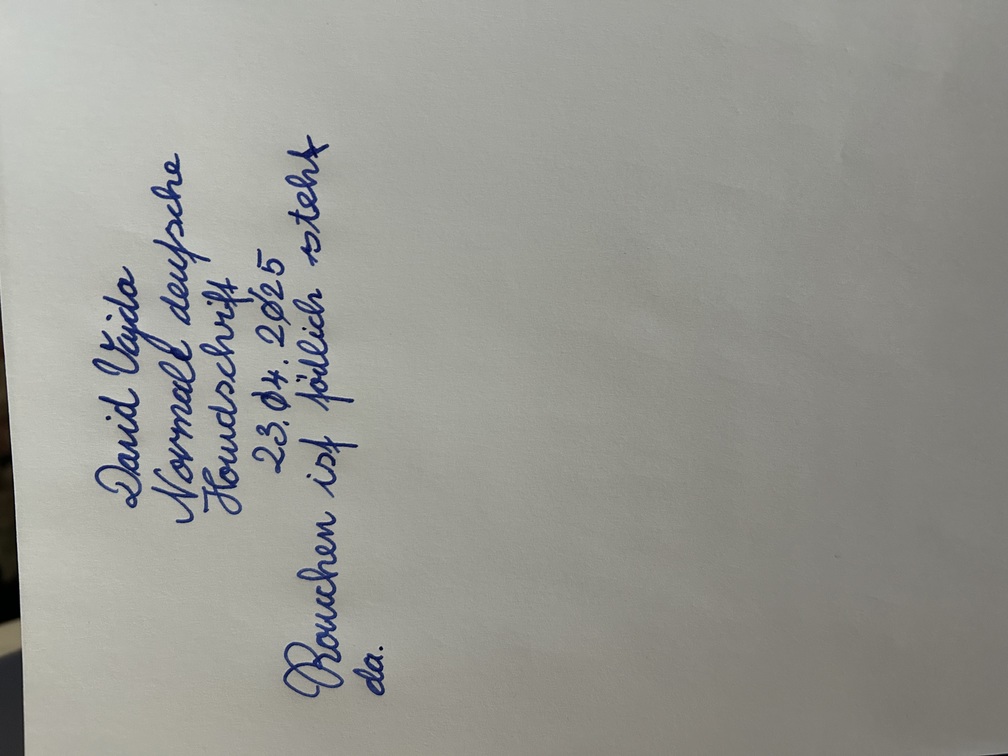 David Vajda
Normale deutsche
Handschrift
23.04.2025
Rauchen ist tödlich steht
da.